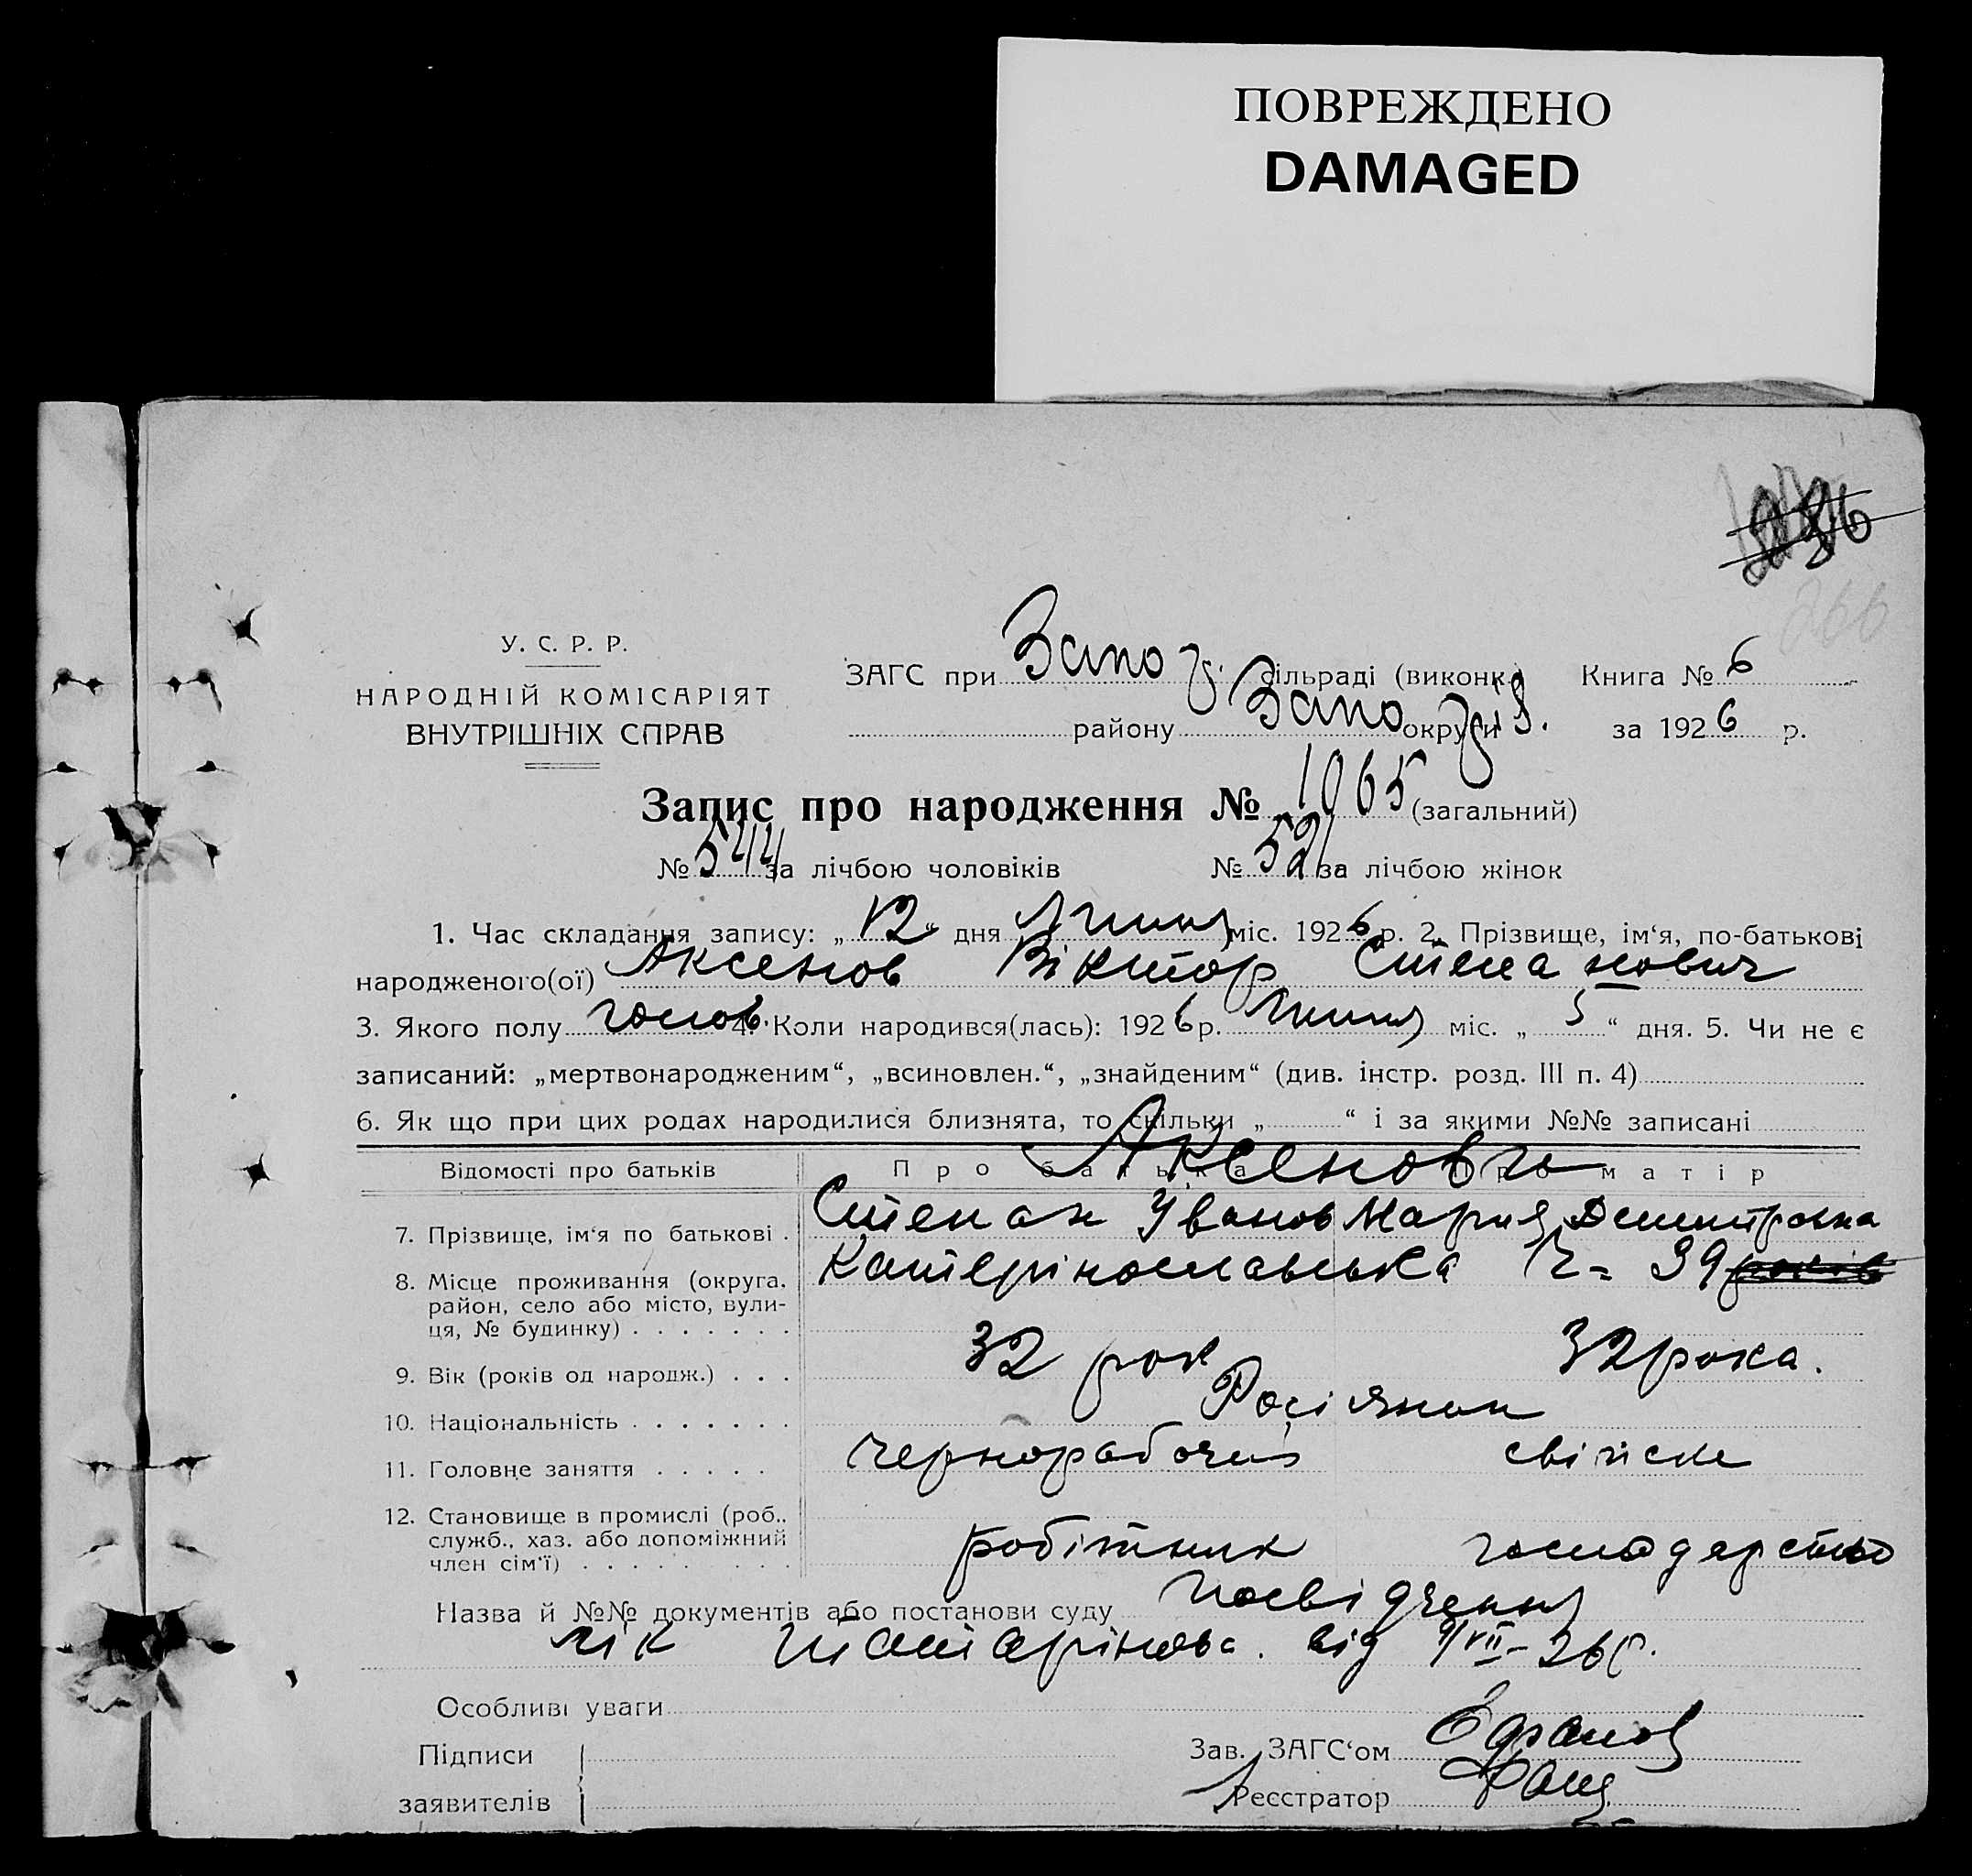 ПОВРЕЖДЕНО
DAMAGED
266
У. С. Р. Р.
НАРОДНІЙ КОМІСАРІЯТ
ВНУТРІШНІХ СПРАВ
ЗАГС при Запоріз. сільраді (виконк.) Книга № 6
району Запоріз. округи за 1926 р.
Запис про народження № 1065 (загальний)
№ 544 за лічбою чоловіків № 521 за лічбою жінок
1. Час складання запису: „12“ дня Липня міс. 1926 р. 2. Прізвище, ім‘я, по-батькові
народженого(ої) Аксенов Віктор Степанович
3. Якого полу чолов. 4. Коли народився(лась): 1926 р. Липня міс. „5“ дня. 5. Чи не є
записаний: „мертвонародженим“, „всиновлен.“, „знайденим“ (див. інстр. розд. III п. 4)
6. Як що при цих родах народилися близнята, то скільки „ “ і за якими №№ записані
Відомості про батьків Про батька Про матір
Аксенови
7. Прізвище, ім‘я по батькові . Степан Іванов Мария Демитровна
8. Місце проживання (округа, район, село або місто, вулиця, № будинку) . . . . . . . Катерінославська 39
9. Вік (років од народж.) . . . 32 рок 32 рока.
10. Національність . . . . . . . Росіянин
11. Головне заняття . . . . . чернорабочий свійске
12. Становище в промислі (роб.,
служб., хаз. або допоміжний
член сім‘ї) . . . . . . . . . робітник господарство
Назва й №№ документів або постанови суду посвідчення
лік від 9/VII-26 р.
Особливі уваги
Підписи
заявителів
Зав. ЗАГС‘ом
Реєстратор